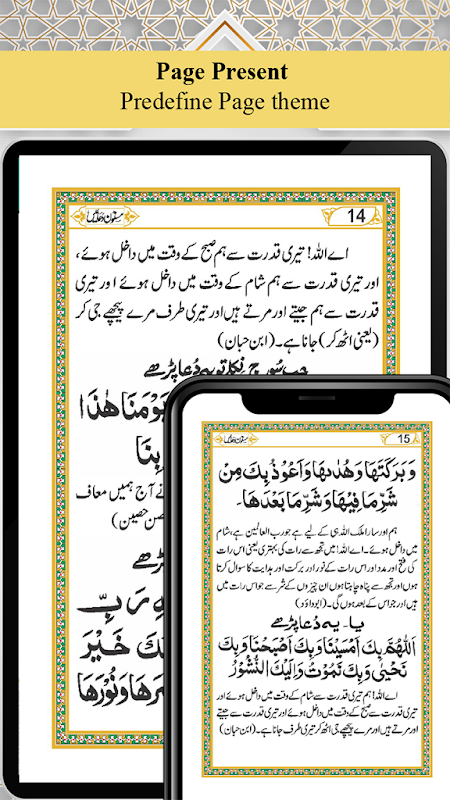 Page Present
Predefine Page theme
مسنون دعائیں
14
اے اللہ! تیری قدرت سے ہم صبح کے وقت میں داخل ہوئے،
اور تیری قدرت سے ہم شام کے وقت میں داخل ہوئے اور تیری
قدرت سے ہم جیتے اور مرتے ہیں اور تیری طرف مرے پیچھے جی کر
(یعنی اٹھ کر) جانا ہے۔ (ابن حبان)
جب سورج نکلے تو یہ دُعا پڑھے
يَوْمَنَا هٰذَا
بِنَا
نے آج ہمیں معاف
حصن حصین)
ھے
هِ رَبِّ
لَكَ خَيْرَ
وَنُوْرَهَا
مسنون دعائیں
15
وَبَرَكَتَهَا وَهُدٰىهَا وَاَعُوْذُ بِكَ مِنْ
شَرِّ مَا فِيْهَا وَشَرِّ مَا بَعْدَهَا۔
ہم اور سارا ملک اللہ ہی کے لیے ہے جو رب العالمین ہے، شام
میں داخل ہوئے۔ اے اللہ! میں تجھ سے رات کی بہتری یعنی اس رات
کی فتح اور مدد اور اس رات کے نور اور برکت اور ہدایت کا سوال کرتا
ہوں اور تجھ سے پناہ چاہتا ہوں ان چیزوں کے شر سے جو اس رات میں
ہیں اور جو اس کے بعد ہوں گی۔ (ابوداؤد)
یا۔ یہ دُعا پڑھے
اَللّٰهُمَّ بِكَ اَمْسَيْنَا وَبِكَ اَصْبَحْنَا وَبِكَ
نَحْيٰى وَبِكَ نَمُوْتُ وَاِلَيْكَ النُّشُوْرُ
اے اللہ! ہم تیری قدرت سے شام کے وقت میں داخل ہوئے اور
تیری قدرت سے صبح کے وقت میں داخل ہوئے اور تیری قدرت سے جیتے
اور مرتے ہیں اور مرے پیچھے جی اٹھ کر تیری طرف جانا ہے۔ (ابن حبان)